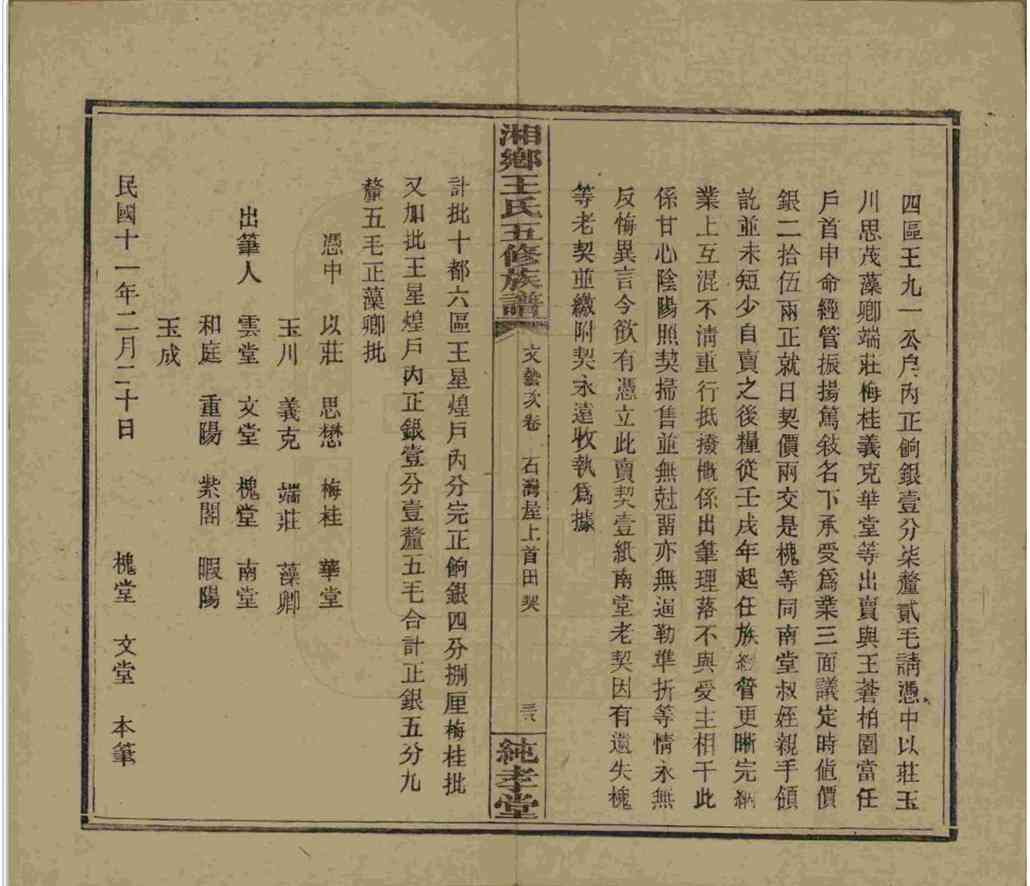 四區王九一公戶內正餉銀壹分柒釐貳毛請憑中以莊玉
川思茂藻卿端莊梅桂義克華堂等出賣與王蒼柏園當任
戶首申命經管振揚篤敍名下承受爲業三面議定時值價
銀二拾伍兩正就日契價兩交是槐等同南堂叔姪親手領
訖並未短少自賣之後糧從壬戌年起任族經管更晰完納
業上互混不清重行抵撥慨係出筆理落不與受主相干此
係甘心陰陽照契掃售並無尅畱亦無逼勒準折等情永無
反悔異言今欲有憑立此賣契壹紙南堂老契因有遺失槐
等老契並繳附契永遠收執爲據
湘鄉王氏五修族譜
文藝次卷 石灣屋上首田契
純孝堂
計批十都六區王星煌戶內分完正餉銀四分捌厘梅桂批
又加批王星煌戶內正銀壹分壹釐五毛合計正銀五分九
釐五毛正藻卿批
憑中 以莊 思懋 梅桂 華堂
玉川 義克 端莊 藻卿
出筆人 雲堂 文堂 槐堂 南堂
和庭 重陽 紫閣 暇陽
玉成
民國十一年二月二十日 槐堂 文堂 本筆